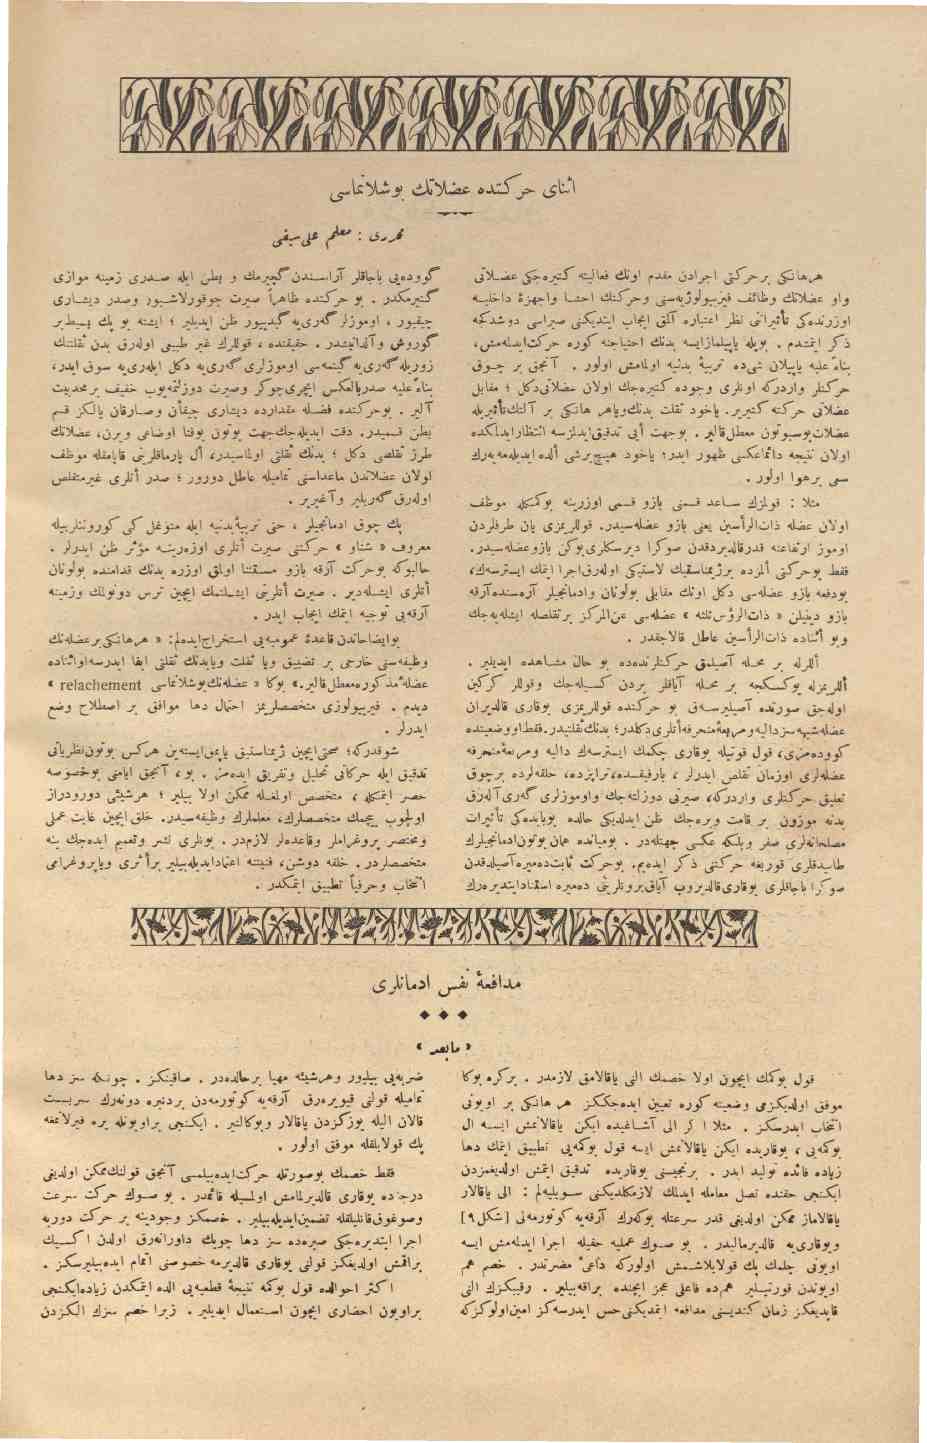 اثنای حركتده عضلاتك بوشلانماسی
محرری : معلم علی سیفی
هرهانكی بر حركتی اجرادن مقدم اونك فعالیته كتیره‌جكی عضلاتی
واو عضلاتك وظائف فیزیولوژیه‌سنی وحركتك احشا واجهزهٔ داخلیه
اوزرنده‌كی تأثیراتی نظر اعتباره آلمق ایجاب ایتدیكنی صیراسی دوشدكجه
ذكر ایتمشدم . بویله یاپیلمازایسه بدنك احتیاجنه كوره حركت‌ایدلمه‌مش،
بناءً علیه یاپیلان شی‌ده تربیهٔ بدنیه اولمامش اولور . آنجق بر چوق
حركتلر واردركه اونلری وجوده كتیره‌جك اولان عضلاتی‌دكل ؛ مقابل
عضلاتی حركته كتیریر. یاخود ثقلت بدنك‌ویاهر هانكی بر آلتك‌تأثیریله
عضلات‌بوسبوتون معطل‌قالیر . بوجهت أیی تدقیق‌ایدلزسه انتظارایدلمكده
اولان نتیجه دائماعكسی ظهور ایدر؛ یاخود هیچ‌برشی ألده ایدیله‌مه‌یه‌رك
سعی برهوا اولور .
مثلا : قولمزك ساعد قسمنی بازو قسمی اوزرینه بوكمكله موظف
اولان عضله ذات‌الرأسین یعنی بازو عضله‌سیدر. قوللریمزی یان طرفلردن
اوموز ارتفاعنه قدرقالدیردقدن صوكرا دیرسكلری‌بوكن بازوعضله‌سیدر.
فقط بوحركتی المزده برژیمناستیك لاستیكی اوله‌رق‌اجرا ایتمك ایسترسه‌ك،
بودفعه بازو عضله‌سی دكل اونك مقابلی بولونان وادمانجیلر آره‌سنده‌آرقه
بازو دینیلن « ذات‌الرؤس ثلثه » عضله‌سی عن‌المركز برتقلصله ایشله‌یه‌جك
وبو أثناده ذات‌الرأسین عاطل قالاجقدر .
أللرله بر محله آصیلمق حركتلرنده‌ده بو حال مشاهده ایدیلیر .
أللریمزله یوكسكجه بر محله آیاقلر یردن كسیله‌جك وقوللر كركین
اوله‌جق صورتده آصیلیرسه‌ق بو حركتده قوللریمزی یوقاری قالدیران
عضله‌شبهه‌سزدالیه‌ومربعهٔ‌منحرفه‌أتلری‌دكلدر؛ بدنك‌ثقلتیدر.فقط‌اووضعیتده
كووده‌مزی، قول قوتیله یوقاری چكمك ایسترسه‌ك دالیه ومربعهٔ‌منحرفه
عضله‌لری اوزمان تقلص ایدرلر ، بارفیقسده،تراپزده، حلقه‌لرده برچوق
تعلیق حركتلری واردركه، صیرتی دوزلته‌جك واوموزلری گه‌ری آله‌رق
بدنه موزون بر قامت ویره‌جك ظن ایدلدیكی حالده بوبابده‌كی تأثیرات
مصلحانه‌لری صفر وبلكه عكسی جهتله‌در . بومیانده همان بوتون‌ادمانجیلرك
طانیدقلری قوربغه حركتنی ذكر ایده‌یم. بوحركت ثابت‌ده‌میره‌آصیلدقدن
صوكرا باجاقلری یوقاری‌قالدیروب آیاق‌برونلرینی ده‌میره استناد‌ایتدیره‌رك
گووده‌یی باجاقلر آراسندن گچیرمك و بطن ایله صدری زمینه موازی
گتیرمكدر . بو حركتده ظاهراً صیرت چوقورلاشیور وصدر دیشاری
چیقیور ، اوموزلر گه‌ری‌یه گیدییور ظن ایدیلیر ؛ ایشته بو پك بسیط‌بر
گوروش وآلدانیشدر . حقیقتده ، قوللرك غیر طبیعی اوله‌رق بدن ثقلتنك
زوریله‌گه‌ری‌یه گیتمه‌سی اوموزلری گه‌ری‌یه دكل ایله‌ری‌یه سوق ایدر،
بناءً علیه صدربالعكس ایچری‌چوكر وصیرت دوزلنمه‌یوب خفیف بر محدبیت
آلیر . بوحركتده فضله مقدارده دیشاری چیقان وصارقان یالكز قسم
بطن قسمیدر. دقت ایدیله‌جك‌جهت بوتون بوفنا اوضاعی ویرن، عضلاتك
طرز تقلصی دكل ؛ بدنك ثقلتی اولماسیدر، أل پارماقلرینی قاپامقله موظف
اولان عضلاتدن ماعداسنی تمامیله عاطل دورور ؛ صدر أتلری غیرمتقلص
اوله‌رق گه‌ریلیر وآغیریر .
پك چوق ادمانجیلر ، حتی تربیهٔ‌بدنیه ایله متوغل كی كوروننلربیله
معروف « شناو » حركتنی صیرت أتلری اوزه‌رینه مؤثر ظن ایدرلر .
حالبوكه بوحركت آرقه بازو مستثنا اولمق اوزره بدنك قدامنده بولونان
أتلری ایشله‌دیر . صیرت أتلرینی ایشلتمك ایچین ترس دونولمك وزمینه
آرقه‌یی توجیه ایتمك ایجاب ایدر .
بوایضاحاتدن قاعدهٔ عمومیه‌یی استخراج‌ایده‌لم: « هرهانكی‌برعضله‌نك
وظیفه‌سنی خارجی بر تضییق ویا ثقلت ویابدنك ثقلتی ایفا ایدرسه‌اواثناده
عضلهٔ‌مذكوره‌معطل‌قالیر.» بوكا « عضله‌نك‌بوشلانماسی relachement »
دیدم . فیزیولوژی متخصصلریمز احتمال دها موافق بر اصطلاح وضع
ایدرلر .
شوقدركه؛ صحتی‌ایچین ژیمناستیق یاپمق‌ایسته‌ین هركس بوتون‌نظریاتی
تدقیق ایله حركاتی تحلیل وتفریق ایده‌مز . بو، آنجق ایامنی بوخصوصه
حصر ایتمكله ، متخصص اولمغله ممكن اولا بیلیر ؛ هرشیئی دوردوراز
اولچوب بیچمك متخصصلرك، معلملرك وظیفه‌سیدر. خلق ایچین غایت عملی
ومختصر پروغراملر وقاعده‌لر لازمدر . بونلری نشر وتعمیم ایده‌جك ینه
متخصصلردر . خلقه دوشن، فنیتنه اعتمادایدیله‌بیلیر برأثری ویاپروغرامی
انتخاب وحرفیاً تطبیق ایتمكدر .
مدافعهٔ نفس ادمانلری
« مابعد »
قول بوكمك ایچون اولا خصمك النی یاقالامق لازمدر . بركره بوكا
موفق اولدیكزمی وضعیته كوره تعیین ایده‌جككز هر هانكی بر اویونی
انتخاب ایدرسكز . مثلا اكر الی آشاغیده ایكن یاقالانمش ایسه ال
بوكمه‌یی ، یوقاریده ایكن یاقالانمش ایسه قول بوكمه‌یی تطبیق ایتمك دها
زیاده فائده تولید ایدر . برنجیسنی یوقاریده تدقیق ایتمش اولدیغمزدن
ایكنجی حقنده نصل معامله ایدلمك لازمكلدیكنی سویلیه‌لم : الی یاقالار
یاقالاماز ممكن اولدیغی قدر سرعتله بوكه‌رك آرقه‌یه كوتورمه‌لی [شكل ۹]
ویوقاری‌یه قالدیرمالیدر . بو صوك عملیه خفیفله اجرا ایدلمه‌مش ایسه
اویونی چلمك پك قولایلاشمش اولوركه داعیٔ مضرتدر . خصم هم
اویوندن قورتیلیر هم‌ده فاعلی عجز ایچنده براقه‌بیلیر. رقیبكزك الی
قایدیغكز زمان كندیسنی مدافعه ایتمدیكنی‌حس ایدرسه‌كز امین‌اولوكزكه
ضربه‌یی بیلیور وهرشیئه مهیا برحالده‌در . صاقینكز . چونكه سز دها
تمامیله قولنی قیویره‌رق آرقه‌یه كوتورمه‌دن بردنبره دونه‌رك سربست
قالان الیله بوزكزدن یاقالار وبوكالتیر . ایكنجی براویونله یره فیرلاتمغه
پك قولایلقله موفق اولور .
فقط خصمك بوصورتله حركت‌ایده‌بیلمسی آنجق قولنك‌ممكن اولدیغی
درجه‌ده یوقاری قالدیرلمامش اولمسیله قائمدر . بو صوك حركت سرعت
وصوغوق‌قانلیلقله تضمین‌ایدیله‌بیلیر . خصمكز وجودینه بر حركت دوریه
اجرا ایتدیره‌جكی صیره‌ده سز دها چویك داورانه‌رق اولدن اكسیك
براقمش اولدیغكز قولنی یوقاری قالدیرمه خصوصنی اتمام ایده‌بیلیرسكز .
اكثر احوالده قول بوكمه نتیجهٔ قطعیه‌یی الده ایتمكدن زیاده‌ایكنجی
براویون احضاری ایچون استعمال ایدیلیر . زیرا خصم سزك الكزدن